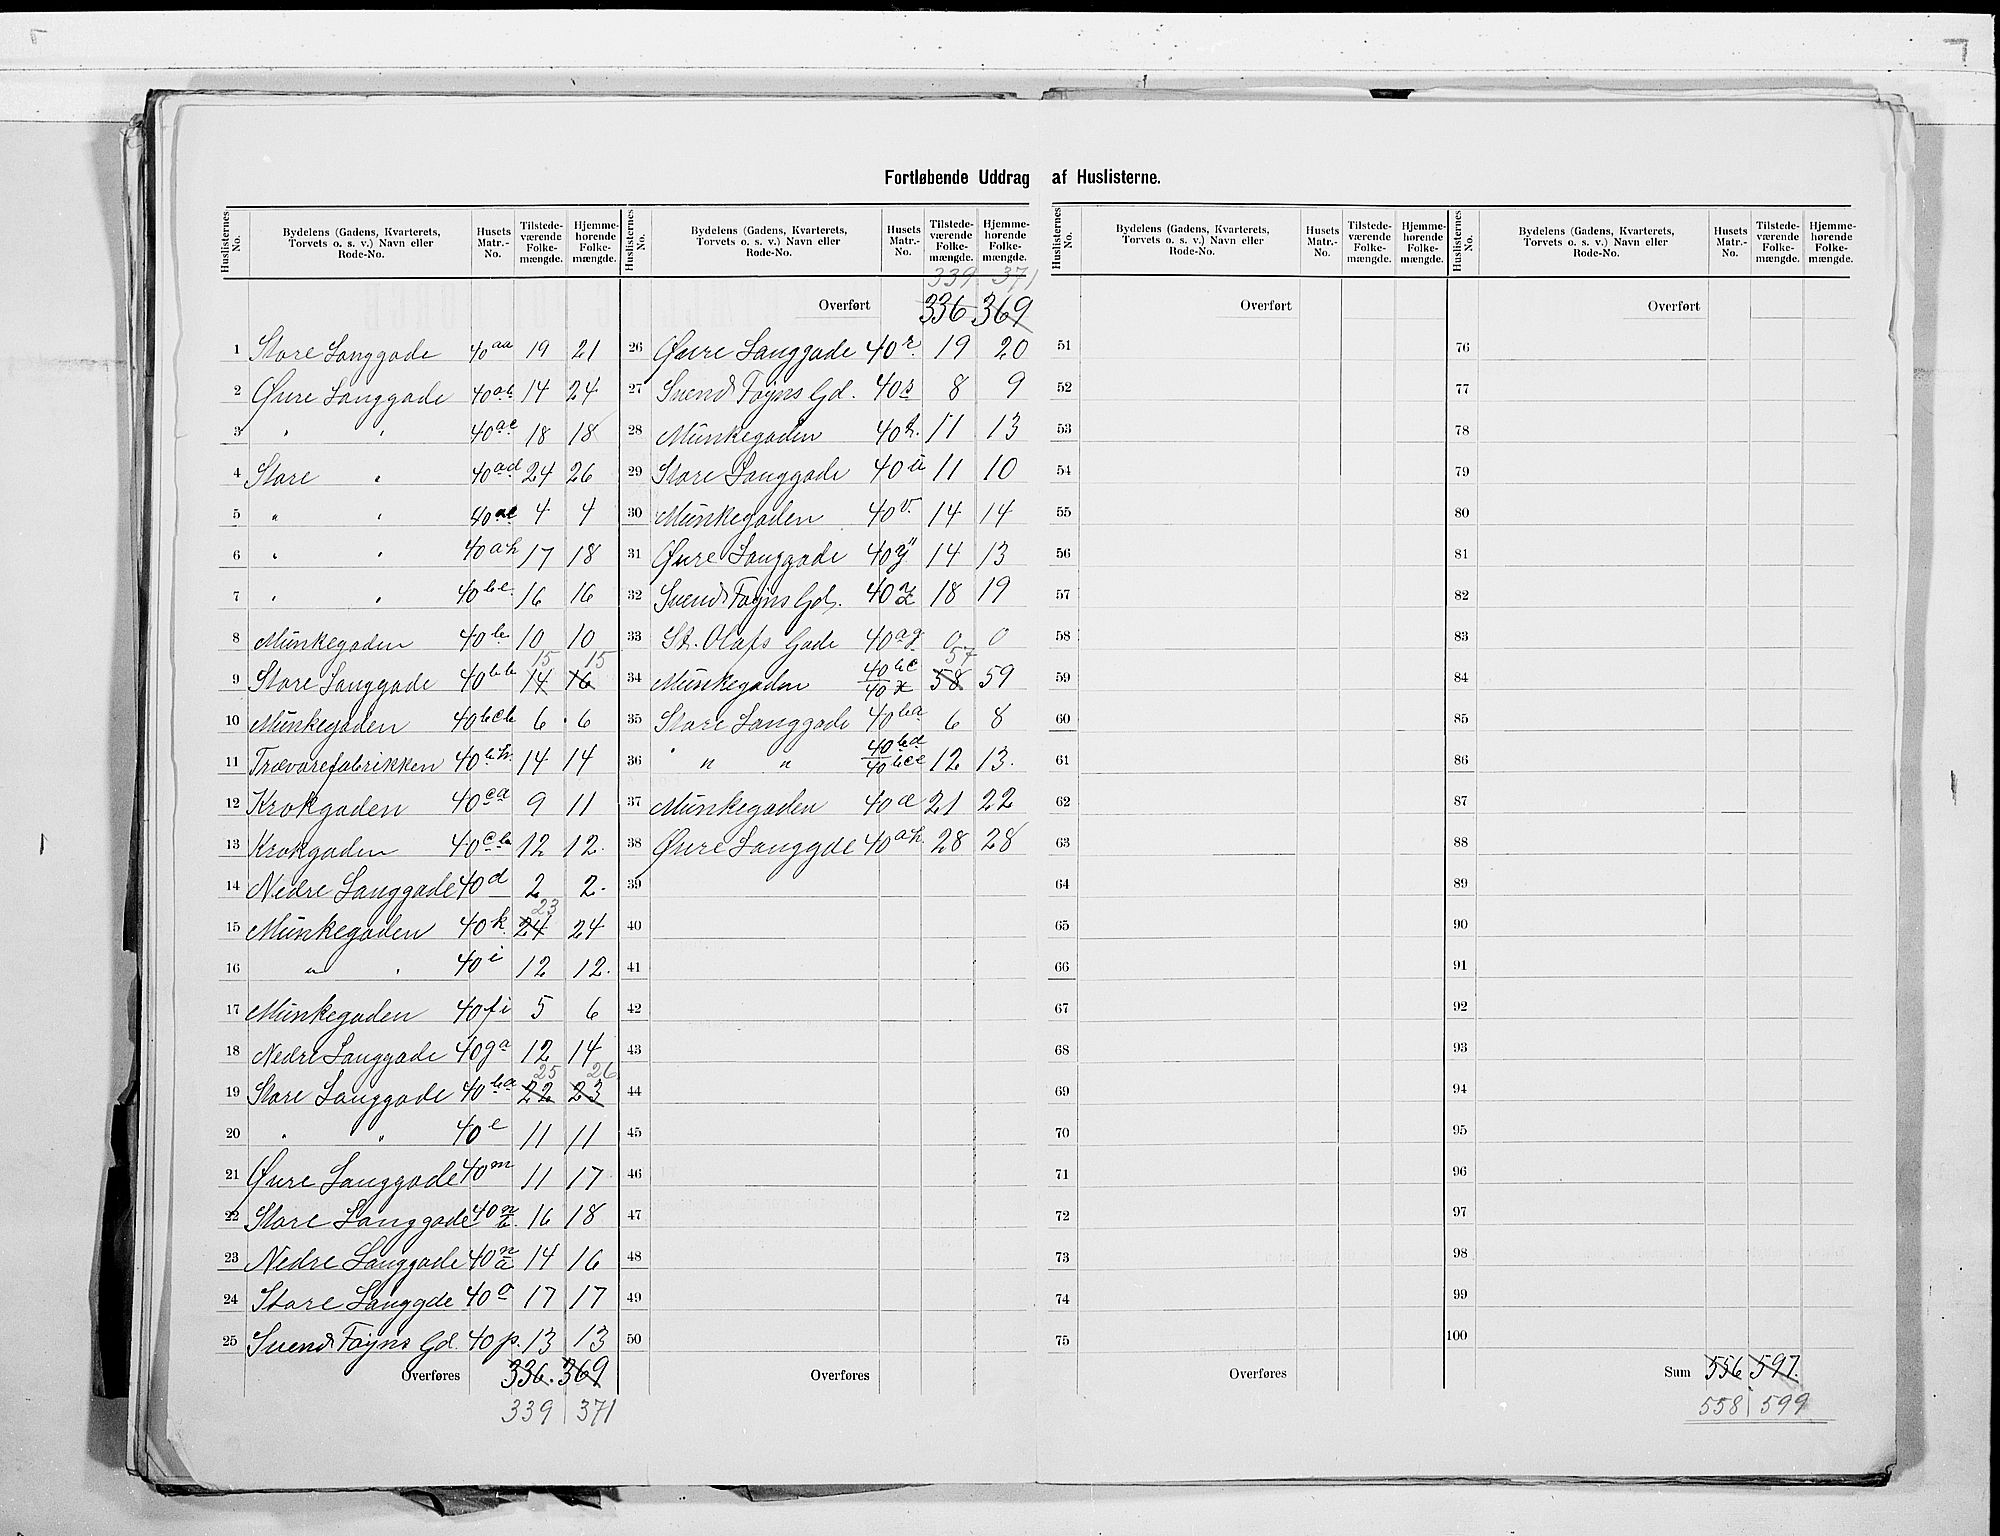 Fortløbende Uddrag af Huslisterne.
Huslisternes No. | Bydelens (Gadens, Kvarterets, Torvets o. s. v.) Navn eller Rode-No. | Husets Matr.-No. | Tilstedeværende Folkemængde. | Hjemmehørende Folkemængde.
1 Store Langgade 40aa 19 21
2 Øvre Langgade 40ab 14 24
3 " " 40ac 18 18
4 Store " 40ad 24 26
5 " " 40ae 4 4
6 " " 40ah 17 18
7 " " 40be 16 16
8 Munkegaden 40b 10 10
15 15
9 Store Langgade 40bb 14 16
10 Munkegaden 40bcb 6 6
11 Trævarefabrikken 40bh 14 14
12 Krokgaden 40ca 9 11
13 Krokgaden 40cb 12 12
14 Nedre Langgade 40d 2 2
23
15 Munkegaden 40k 24 24
16 " " 40i 12 12
17 Munkegaden 40fi 5 6
18 Nedre Langgade 40ga 12 14
25 26
19 Store Langgade 40ha 22 23
20 " " 40e 11 11
21 Øvre Langgade 40m 11 17
22 Store Langgade 40n/b 16 18
23 Nedre Langgade 40n/a 14 16
24 Store Langgde 40o 17 17
25 Svend Foyns Gd. 40p. 13 13
Overføres 336. 369
339 371
Huslisternes No. | Bydelens (Gadens, Kvarterets, Torvets o. s. v.) Navn eller Rode-No. | Husets Matr.-No. | Tilstedeværende Folkemængde. | Hjemmehørende Folkemængde.
339 371
Overført 336 369
26 Øvre Langgade 40r 19 20
27 Svend Foyns Gd. 40s 8 9
28 Munkegaden 40t. 11 13
29 Store Langgade 40u 11 10
30 Munkegaden 40v. 14 14
31 Øvre Langgade 40y 14 13
32 Svend Foyns Gd. 40z 18 19
33 St. Olafs Gade 40ag 0 0
57
34 Munkegaden 40bc/40x 58 59
35 Store Langgade 40ba 6 8
36 " " 40bd/40bce 12 13.
37 Munkegaden 40a 21 22
38 Øvre Langgde 40ah. 28 28
39
40
41
42
43
44
45
46
47
48
49
50
Overføres
Huslisternes No. | Bydelens (Gadens, Kvarterets, Torvets o. s. v.) Navn eller Rode-No. | Husets Matr.-No. | Tilstedeværende Folkemængde. | Hjemmehørende Folkemængde.
Overført
51
52
53
54
55
56
57
58
59
60
61
62
63
64
65
66
67
68
69
70
71
72
73
74
75
Overføres
Huslisternes No. | Bydelens (Gadens, Kvarterets, Torvets o. s. v.) Navn eller Rode-No. | Husets Matr.-No. | Tilstedeværende Folkemængde. | Hjemmehørende Folkemængde.
Overført
76
77
78
79
80
81
82
83
84
85
86
87
88
89
90
91
92
93
94
95
96
97
98
99
100
Sum 556 597.
558 599